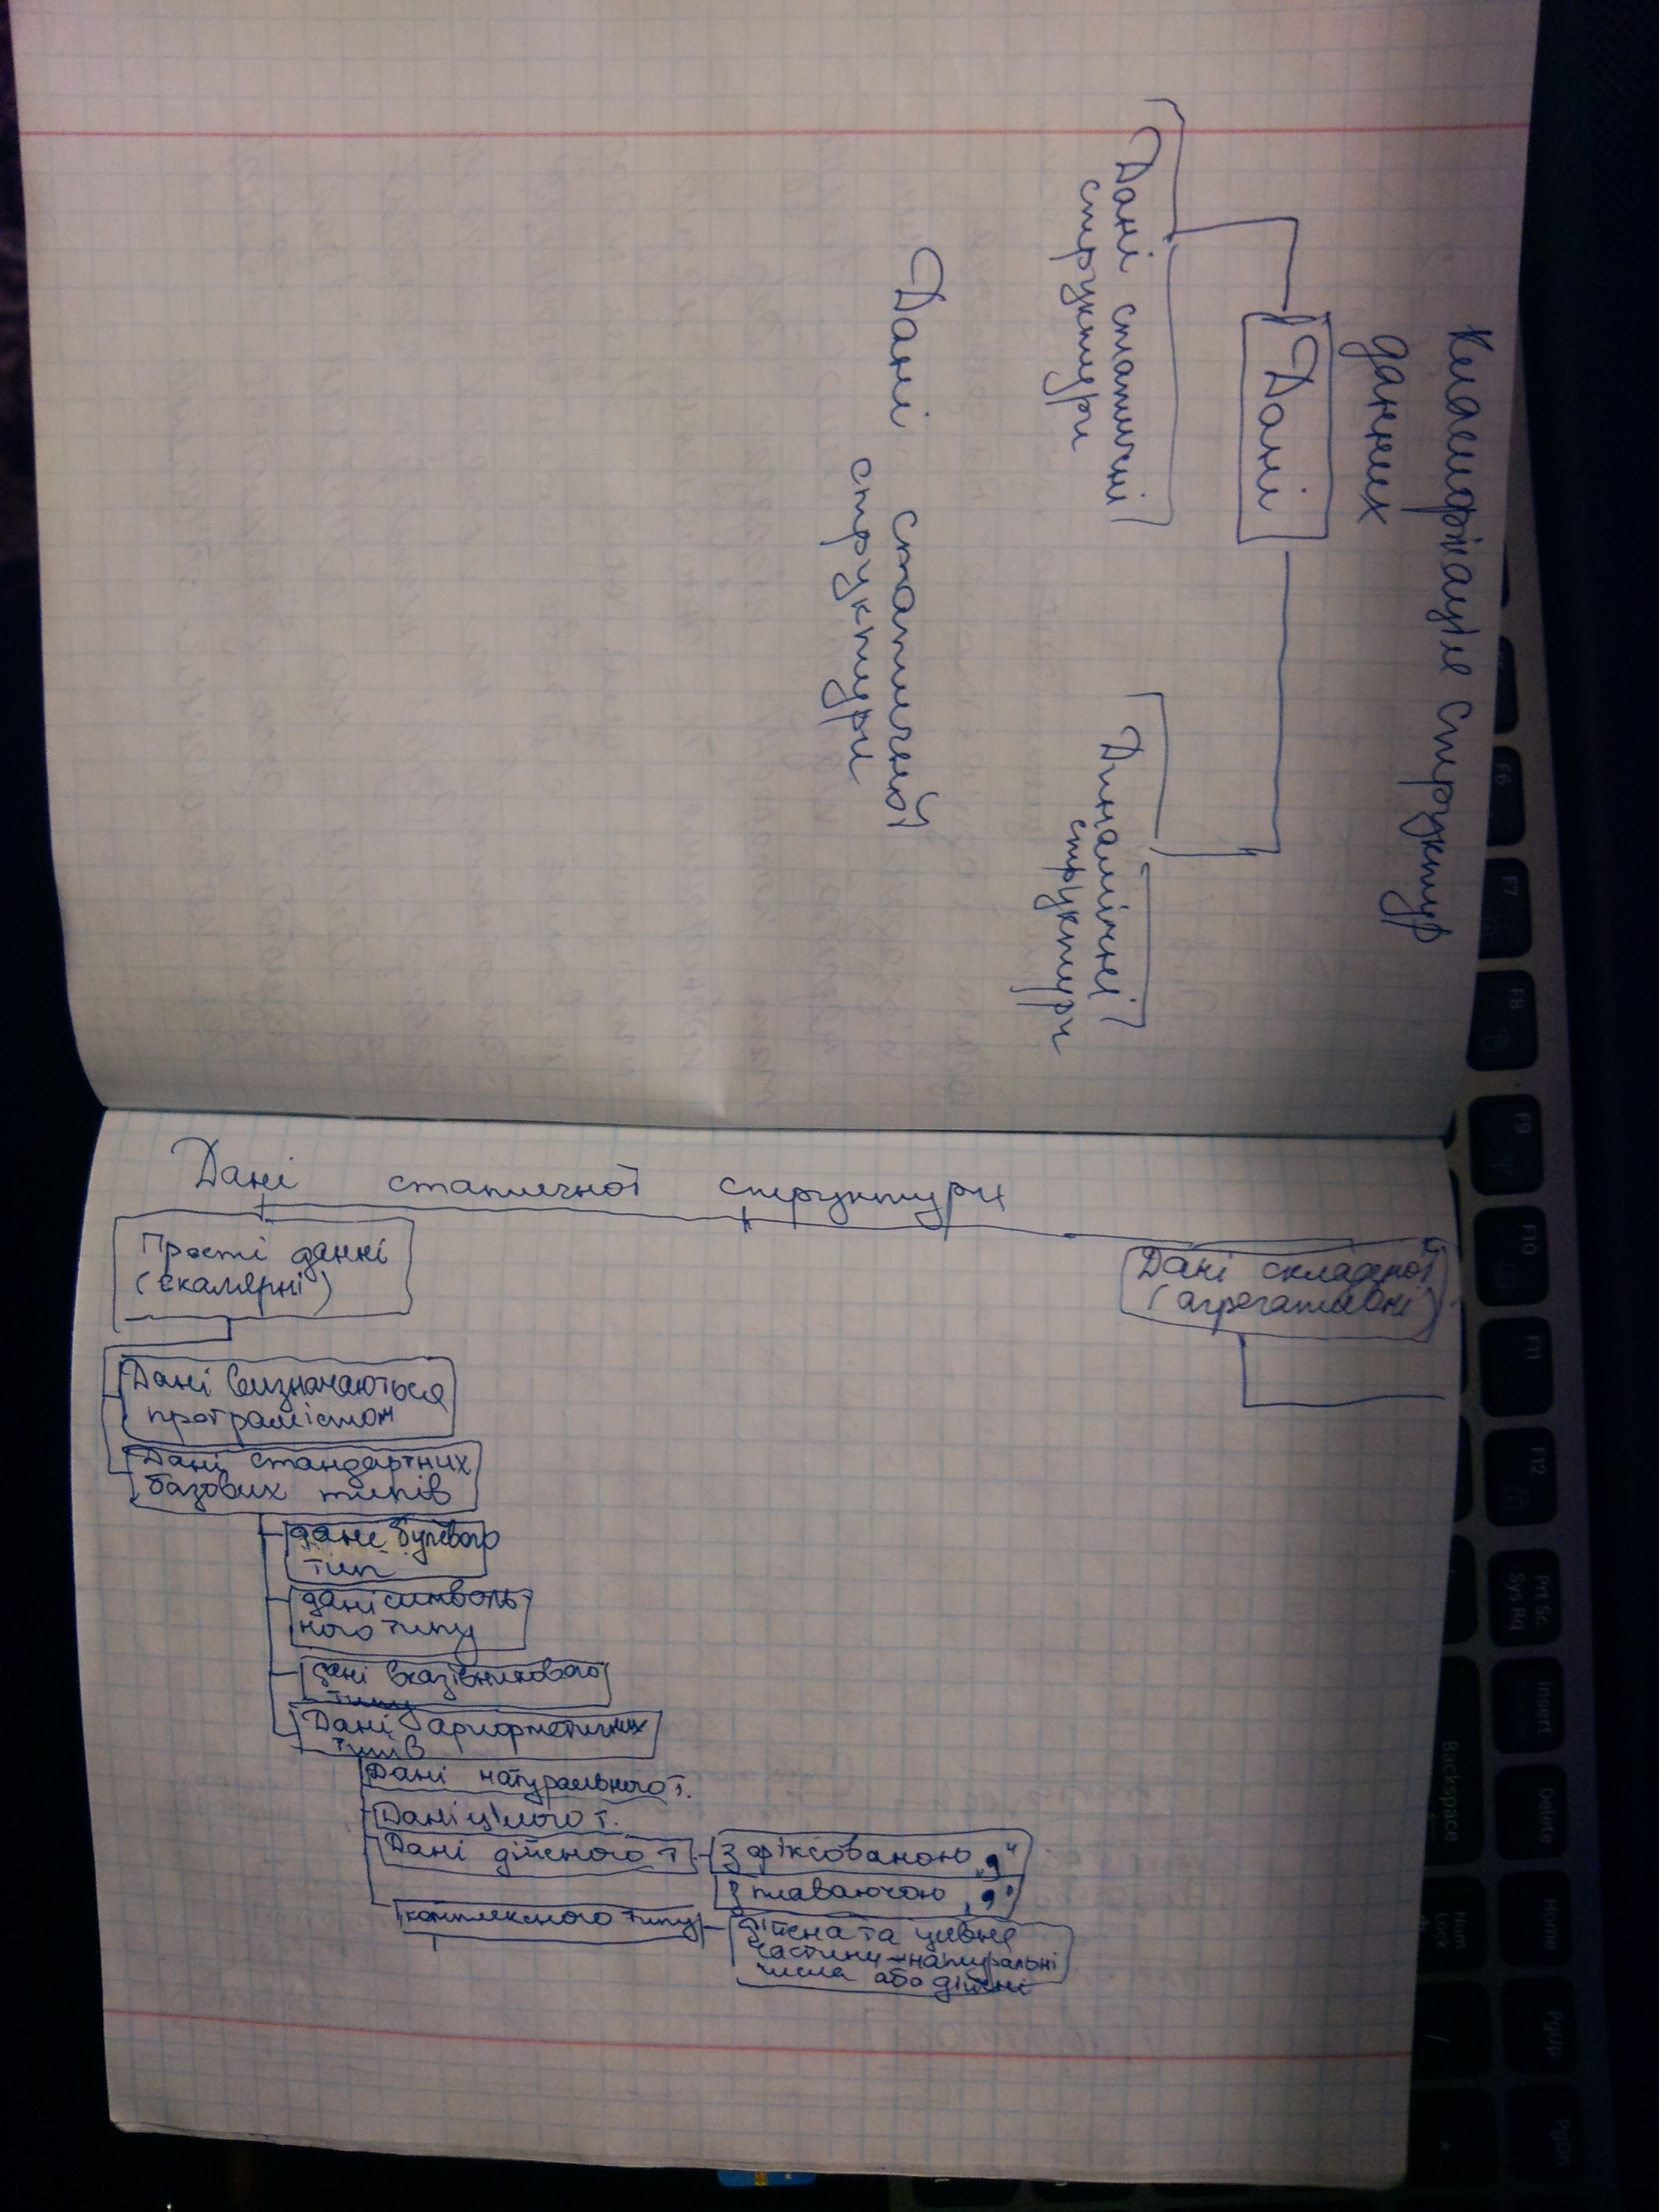 Класифікація структур
данних
Дані
Дані статичні
структури
Динамічні
структури
Дані статичної
структури
Дані статичної структури
Прості данні
(скалярні)
Дані складної
(агрегативні)
Дані визначаються
програмістом
Дані стандартних
базових типів
дане булевого
тип
дані символь
ного типу
дані вказівникового
типу
Дані арифметичних
типів
Дані натурального т.
Дані цілого т.
Дані дійсного т.
З фіксованою „,“
З плаваючою „,“
комплексного типу
дійсна та уявна
частини - натуральні
числа або дійсні
F6
F7
F8
F9
F10
F11
F12
Prt Sc
Sys Rq
Insert
Delete
Backspace
Home
Num
Lock
PgUp
/
PgDn
*